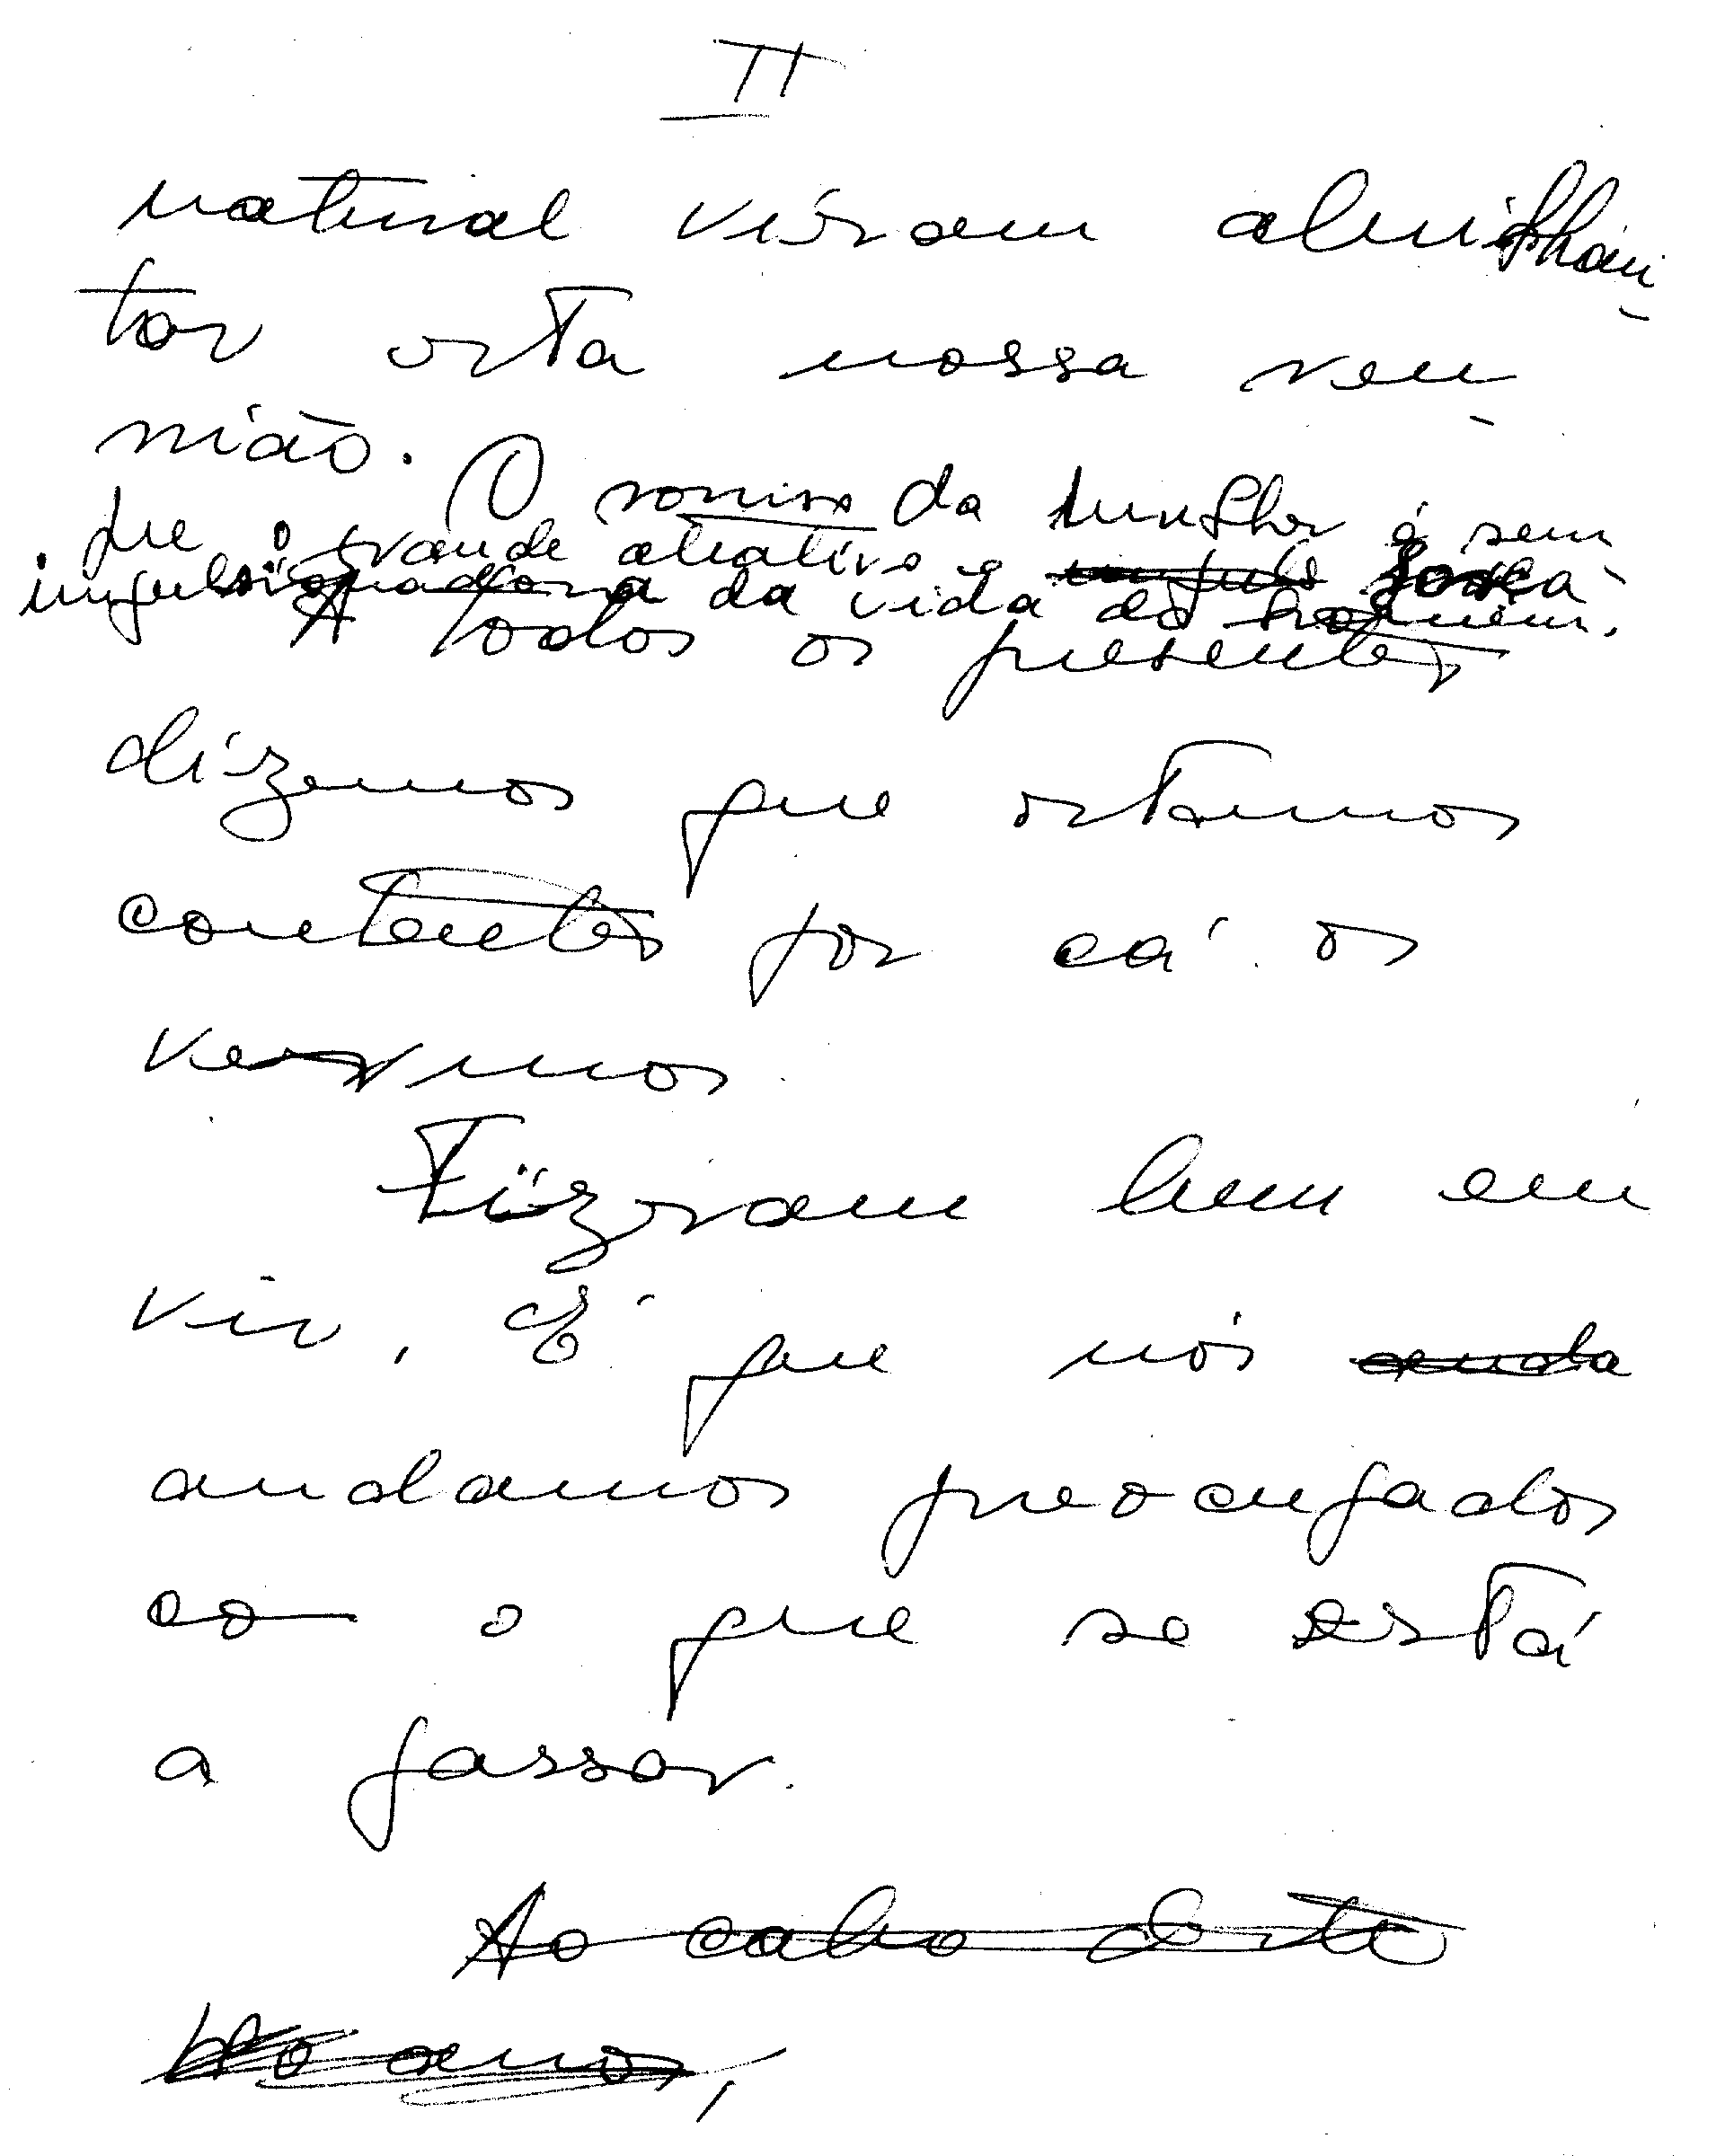 II
natural vieram abrilhan-
tar esta nossa reu-
nião.
O sorriso da mulher é sem
pre o grande atrativo e força
impulsionadora da vida do homem.
A todos os presentes
dizemos que estamos
contentes por cá os
vermos
Fizeram bem em
vir, É que nós anda
andamos preocupados
co o que se está
a passar.
Ao cabo deste
anos,